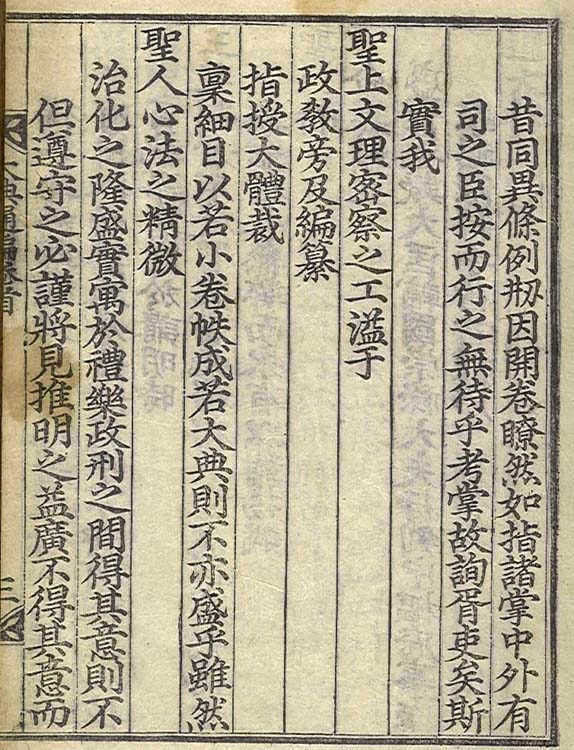 昔同異條例刱因開卷瞭然如指諸掌中外有
司之臣按而行之無待乎考掌故詢胥吏矣斯
實我
聖上文理密察之工溢于
政敎旁及編纂
指授大體裁
稟細目以若小卷帙成若大典則不亦盛乎雖然
聖人心法之精微
治化之隆盛實寓於禮樂政刑之間得其意則不
但遵守之必謹將見推明之益廣不得其意而
大典通編卷首
三